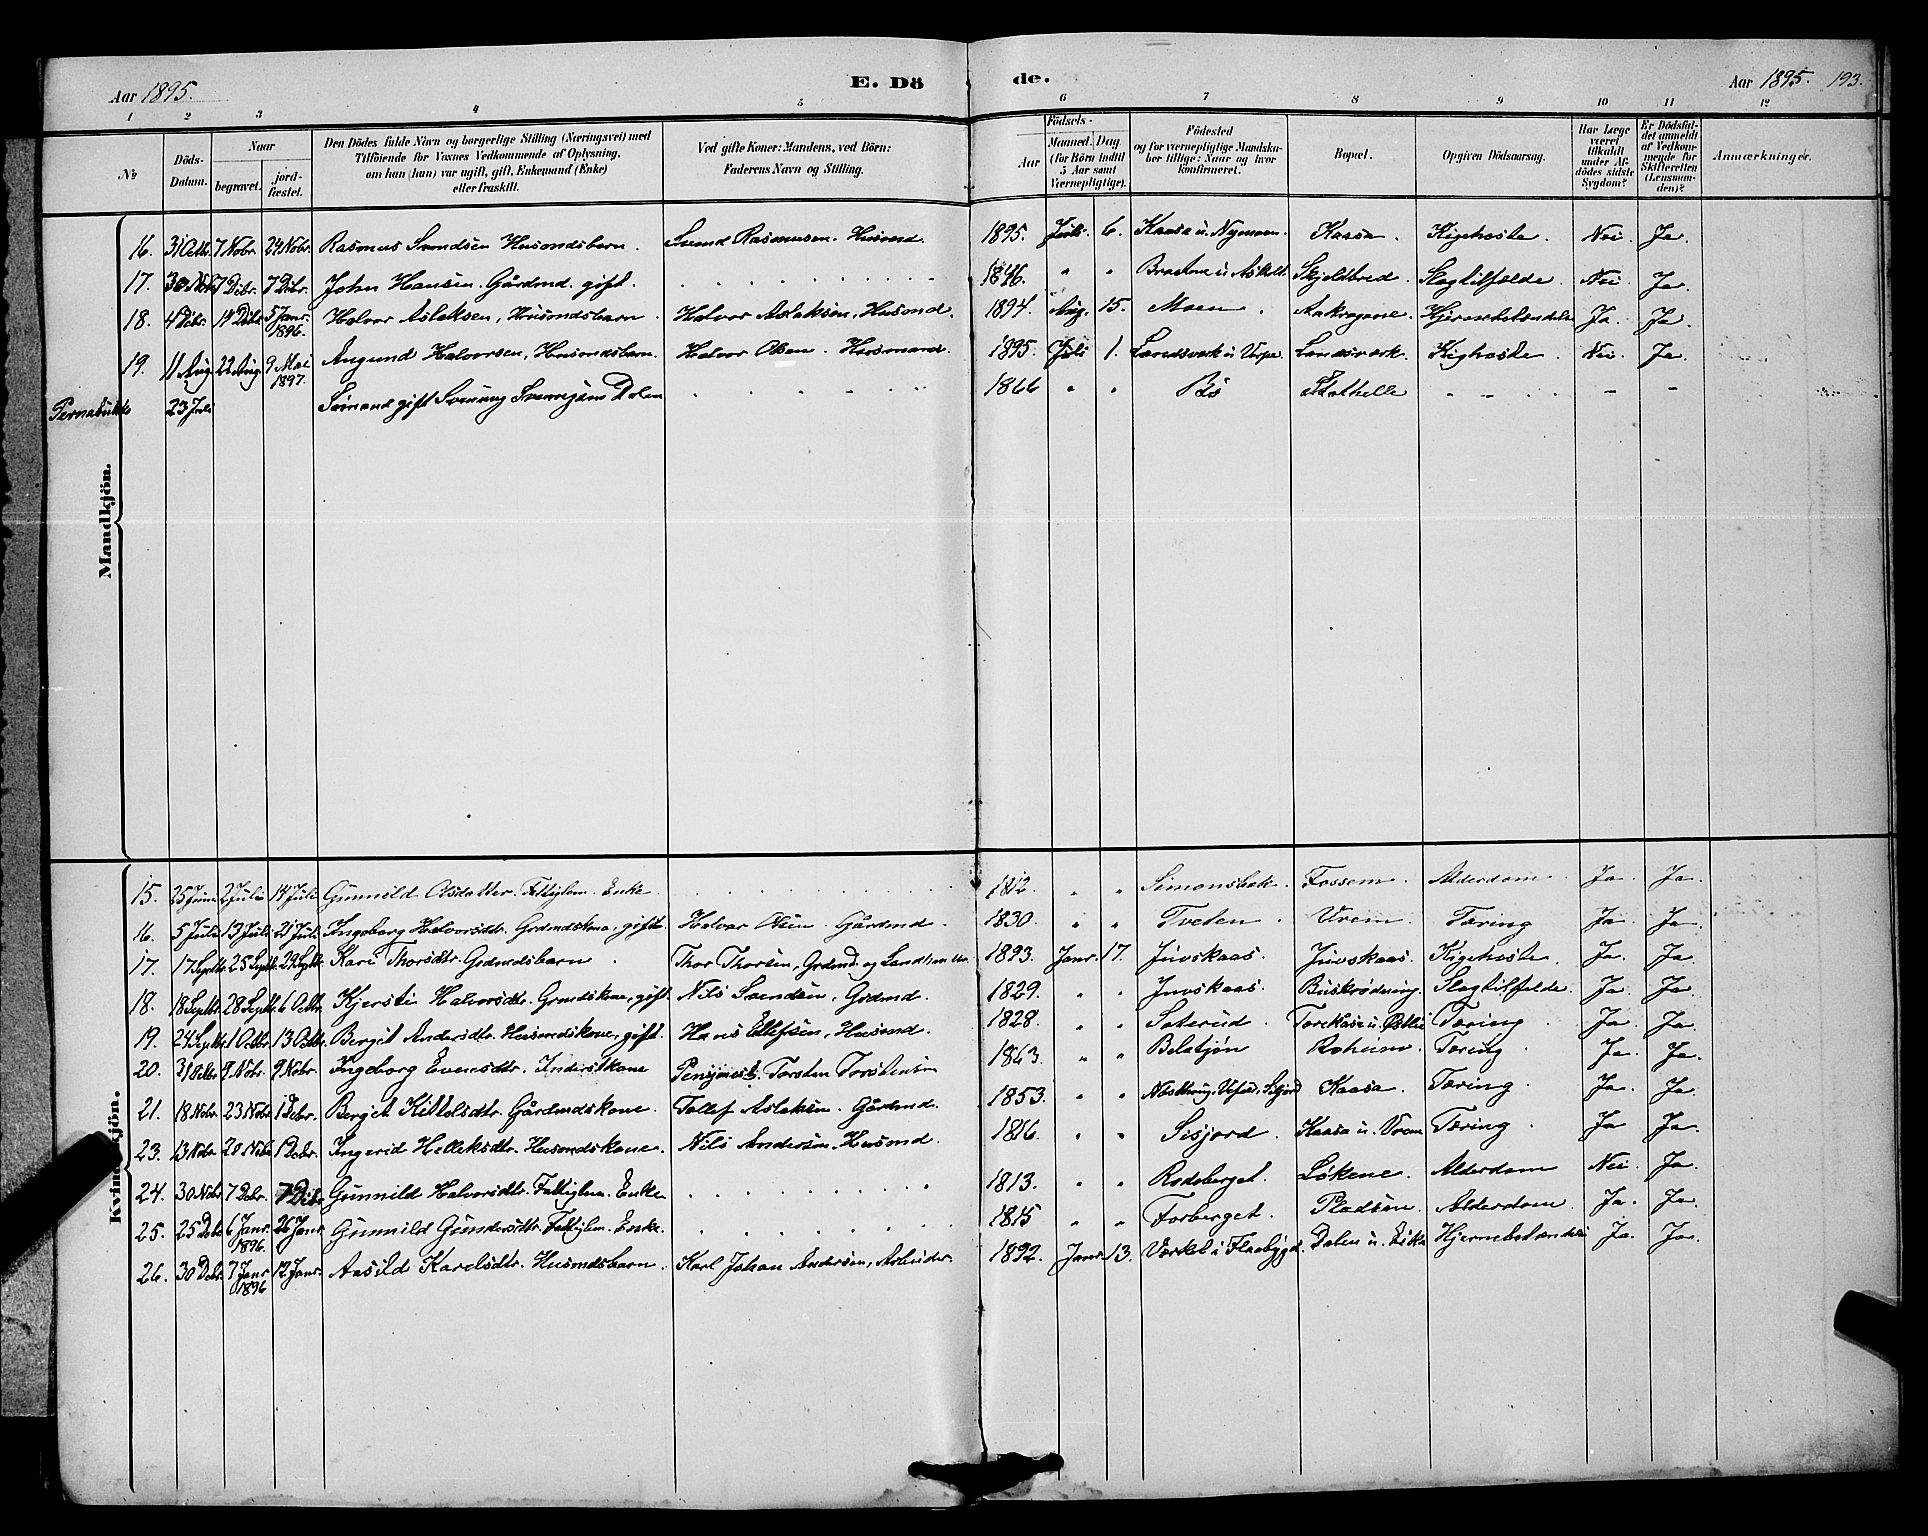 Aar 1895. E. Dö de. Aar 1895. 193.
1 2 3 4 5 6 7 8 9 10 11 12
No
Döds-Datum.
Naar
begravet.
jord-fæstet.
Den Dödes fulde Navn og borgerlige Stilling (Næringsvei) med
Tilföiende for Voxnes Vedkommende af Oplysning,
om han (hun) var ugift, gift, Enkemand (Enke)
eller fraskilt.
Ved gifte Koner: Mandens, ved Börn:
Faderens Navn og Stilling.
Födsels-
Aar
Maaned. Dag
(for Börn indtil
5 Aar samt
Værnepligtige).
Födested
og for værnepligtige Mandska-
ber tillige: Naar og hvor
konfirmeret.
Bopæl.
Opgiven Dödsaarsag.
Har Læge
været
tilkaldt
under Af-
dödes sidste
Sygdom?
Er Dödsfal-
det anmeldt
af Vedkom-
mende for
Skifteretten
(Lensman-
den)?
Anmærkninger.
Mandkjön.
16. 31 Octbr. 7 Novbr. 24 Novbr. Rasmus Svendsen Husmdsbarn. Svend Rasmussen. Husmd. 1895. Juli. 6. Kaasa u. Kaasa. Kigehoste. Nei. Ja.
17. 30 Novbr 7 Debr. 7 Debr. John Hansen. Gårdmd. gift. 1846. " " Skjeldbred. Slagtilfælde. Nei. Ja.
18. 4 Debr. 14 Debr 5 Janr. 1896. Halvor Aslaksen, Husmdsbarn. Halvor Aslaksen, Husmd. 1894. Aug. 15. Moen. Hjernebetændelse Ja. Ja.
19. 11 Aug. 22 Aug. 9 Mai 1897. Aagund Halvorsen, Husmdsbarn. Halvor Olsen. Husmand. 1895. Juli 1. Landsverk u Verpe. Landsverk. Kighoste. Nei. Ja.
23 Juli Sömand gift Svenung Dalen 1866 " " Bö Stathelle
Kvindekjön.
15. 25 Juni 2 Juli 14 Juli Gunnild Olsdatter. Fattiglem. Enke. 1812. " " Simonsbak. Fossem. Alderdom. Ja. Ja.
16. 5 Juli 13 Juli 21 Juli Ingeborg Halvorsdtr. Grdmdskone, gift. Halvor Olsen. Gårdmd. 1830. " " Tveten. Vrem. Tæring Ja. Ja.
17. 17 Septbr. 25 Septbr. 29 Septbr. Kari Thorsdtr. Grdmdsbarn. Thor Thorsen, Grdmd. og 1893. Janr. 17. Juvskaas. Juvskaas. Kigehoste. Ja. Ja.
18. 18 Septbr. 28 Septbr. 6 Octbr. Kjersti Halvorsdtr. Grmdskone, gift. Nils Svendsen, Grdmd. 1829. " " Juvskaas. Slagtilfælde. Ja. Ja.
19. 24 Septbr. 1 Octbr. 13 Octbr. Bergit Andersdtr. Husmdskone, gift. Hans Ellefsen, Husmd. 1828. " " Saterud. Tæring. Ja. Ja.
20. 31 Octbr 9 Nobr. 9 Nobr. Ingeborg Evensdtr. Inderstkone Torsten Torstensen 1863. " " Belatjön Roheim. Tæring. Ja. Ja.
21. 18 Nobr. 23 Nobr. 1 Debr. Bergit Kittelsdtr. Gårdmdskone. Tollef Aslaksen. Gårdmd. 1853. " " Kaasa. Tæring. Ja. Ja.
23. 13 Nobr. 20 Nobr. 1 Debr. Ingerid Helleksdtr. Husmdskone. Nils Andersen, Husmd. 1816. " " Sisjord. Kaasa u. Vrem Tæring. Ja Ja.
24. 30 Nobr. 7 Debr. 7 Debr Gunnild Halvorsdtr. Fattiglem. Enke 1813. " " Rodeberget. Lökene. Alderdom Nei. Ja.
25. 25 Debr. 6 Janr. 1896. 26 Janr. Gunnild Gundersdtr. Fattiglem. Enke. 1815 " " Forberget. Pladsen. Alderdom. Ja. Ja.
26. 30 Debr. 7 Janr. 1896 12 Janr. Aasild Karlsdtr. Husmdsbarn. Karl Johan Andersen, Arbeider. 1892. Janr. 13. i Flaabygd. Dalen u. Eika Hjernebetændelse Ja. Ja.